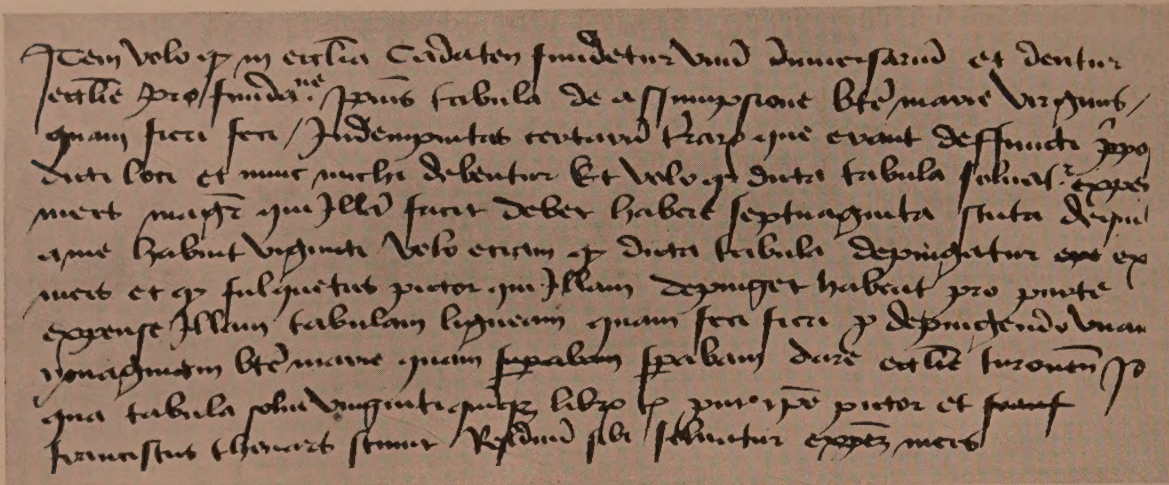 Item volo qp in ecclia Candaten fundetur unu anniversariu et dentur
ecclie pro fundane ipius tabula de assumpsione bte marie virginis /
quam fieri feci / Indempnitas certaru trarp que erant deffuncti ppo
dicti loci et nunc michi debentur Et volo qp dicta tabula solvatr expen
meis magr qui illa facit debet habere septuaginta scuta de qui
a me habuit viginti volo etiam qp dicta tabula depingatur ex
meis et qp fulquetus pictor qui illam depinget habeat pro parte
expense illam tabulam ligneam quam feci fieri p depingendo unam
ymaginem bte marie quam sperabam dare ecclie turonen
qua tabula solvi viginti quinqz libr pictor et
franciscus thenart sciunt Residuu sibi solvatur expen meis